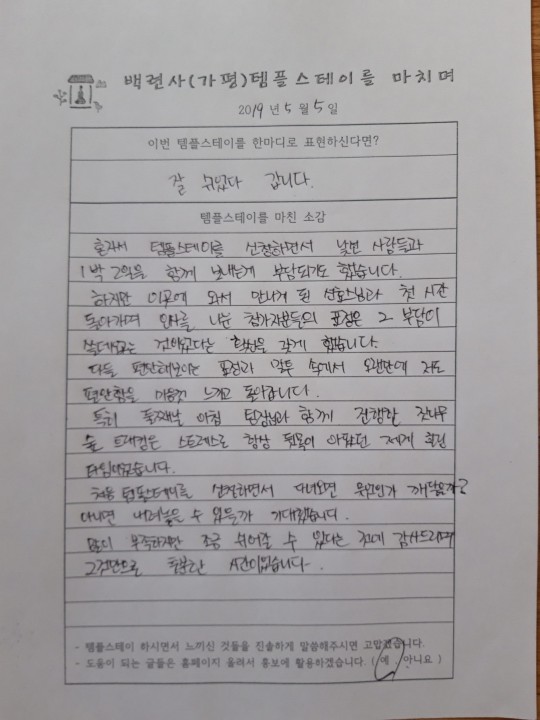 백련사(가평)템플스테이를 마치며
2019년 5월 5일
이번 템플스테이를 한마디로 표현하신다면?
잘 쉬었다 갑니다.
템플스테이를 마친 소감
혼자서 템플스테이를 신청하면서 낯선 사람들과
1박 2일을 함께 보내는게 부담되기도 했습니다.
하지만 이곳에 와서 만나게 된 스님과 첫 시간
돌아가며 인사를 나눈 참가자분들의 표정은 그 부담이
쓸데없는 것이었다는 확신을 갖게 했습니다.
다들 편안해보이는 표정과 말투 속에서 오랜만에 저도
편안함을 마음껏 느끼고 돌아갑니다.
특히 둘째날 아침 팀장님과 함께 진행한 잣나무
숲 트래킹은 스트레스로 항상 뒷목이 아팠던 저에게 힐링
타임이었습니다.
처음 템플스테이를 신청하면서 다녀오면 무엇인가 깨달을까?
아니면 내려놓을 수 있을까 기대했습니다.
많이 부족하지만 조금 쉬어갈 수 있다는 것에 감사드리며
그것만으로 충분한 시간이었습니다.
- 템플스테이 하시면서 느끼신 것들을 진솔하게 말씀해주시면 고맙겠습니다.
- 도움이 되는 글들은 홈페이지 올려서 홍보에 활용하겠습니다. ( 예 , 아니요 )